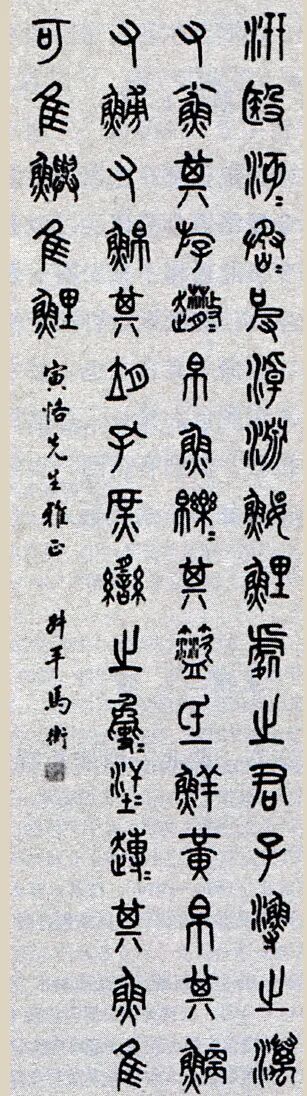 汧殹沔=烝皮淖淵鰋鯉處之君子漁之澫
又小魚其斿趣=帛魚皪=其盜氐鮮黃帛其鯾
又䱥又鮊其朔孔庶臠之㲋=汗=趨=其魚隹
可隹鱮隹鯉
寅恪先生雅正 叔平馬衡